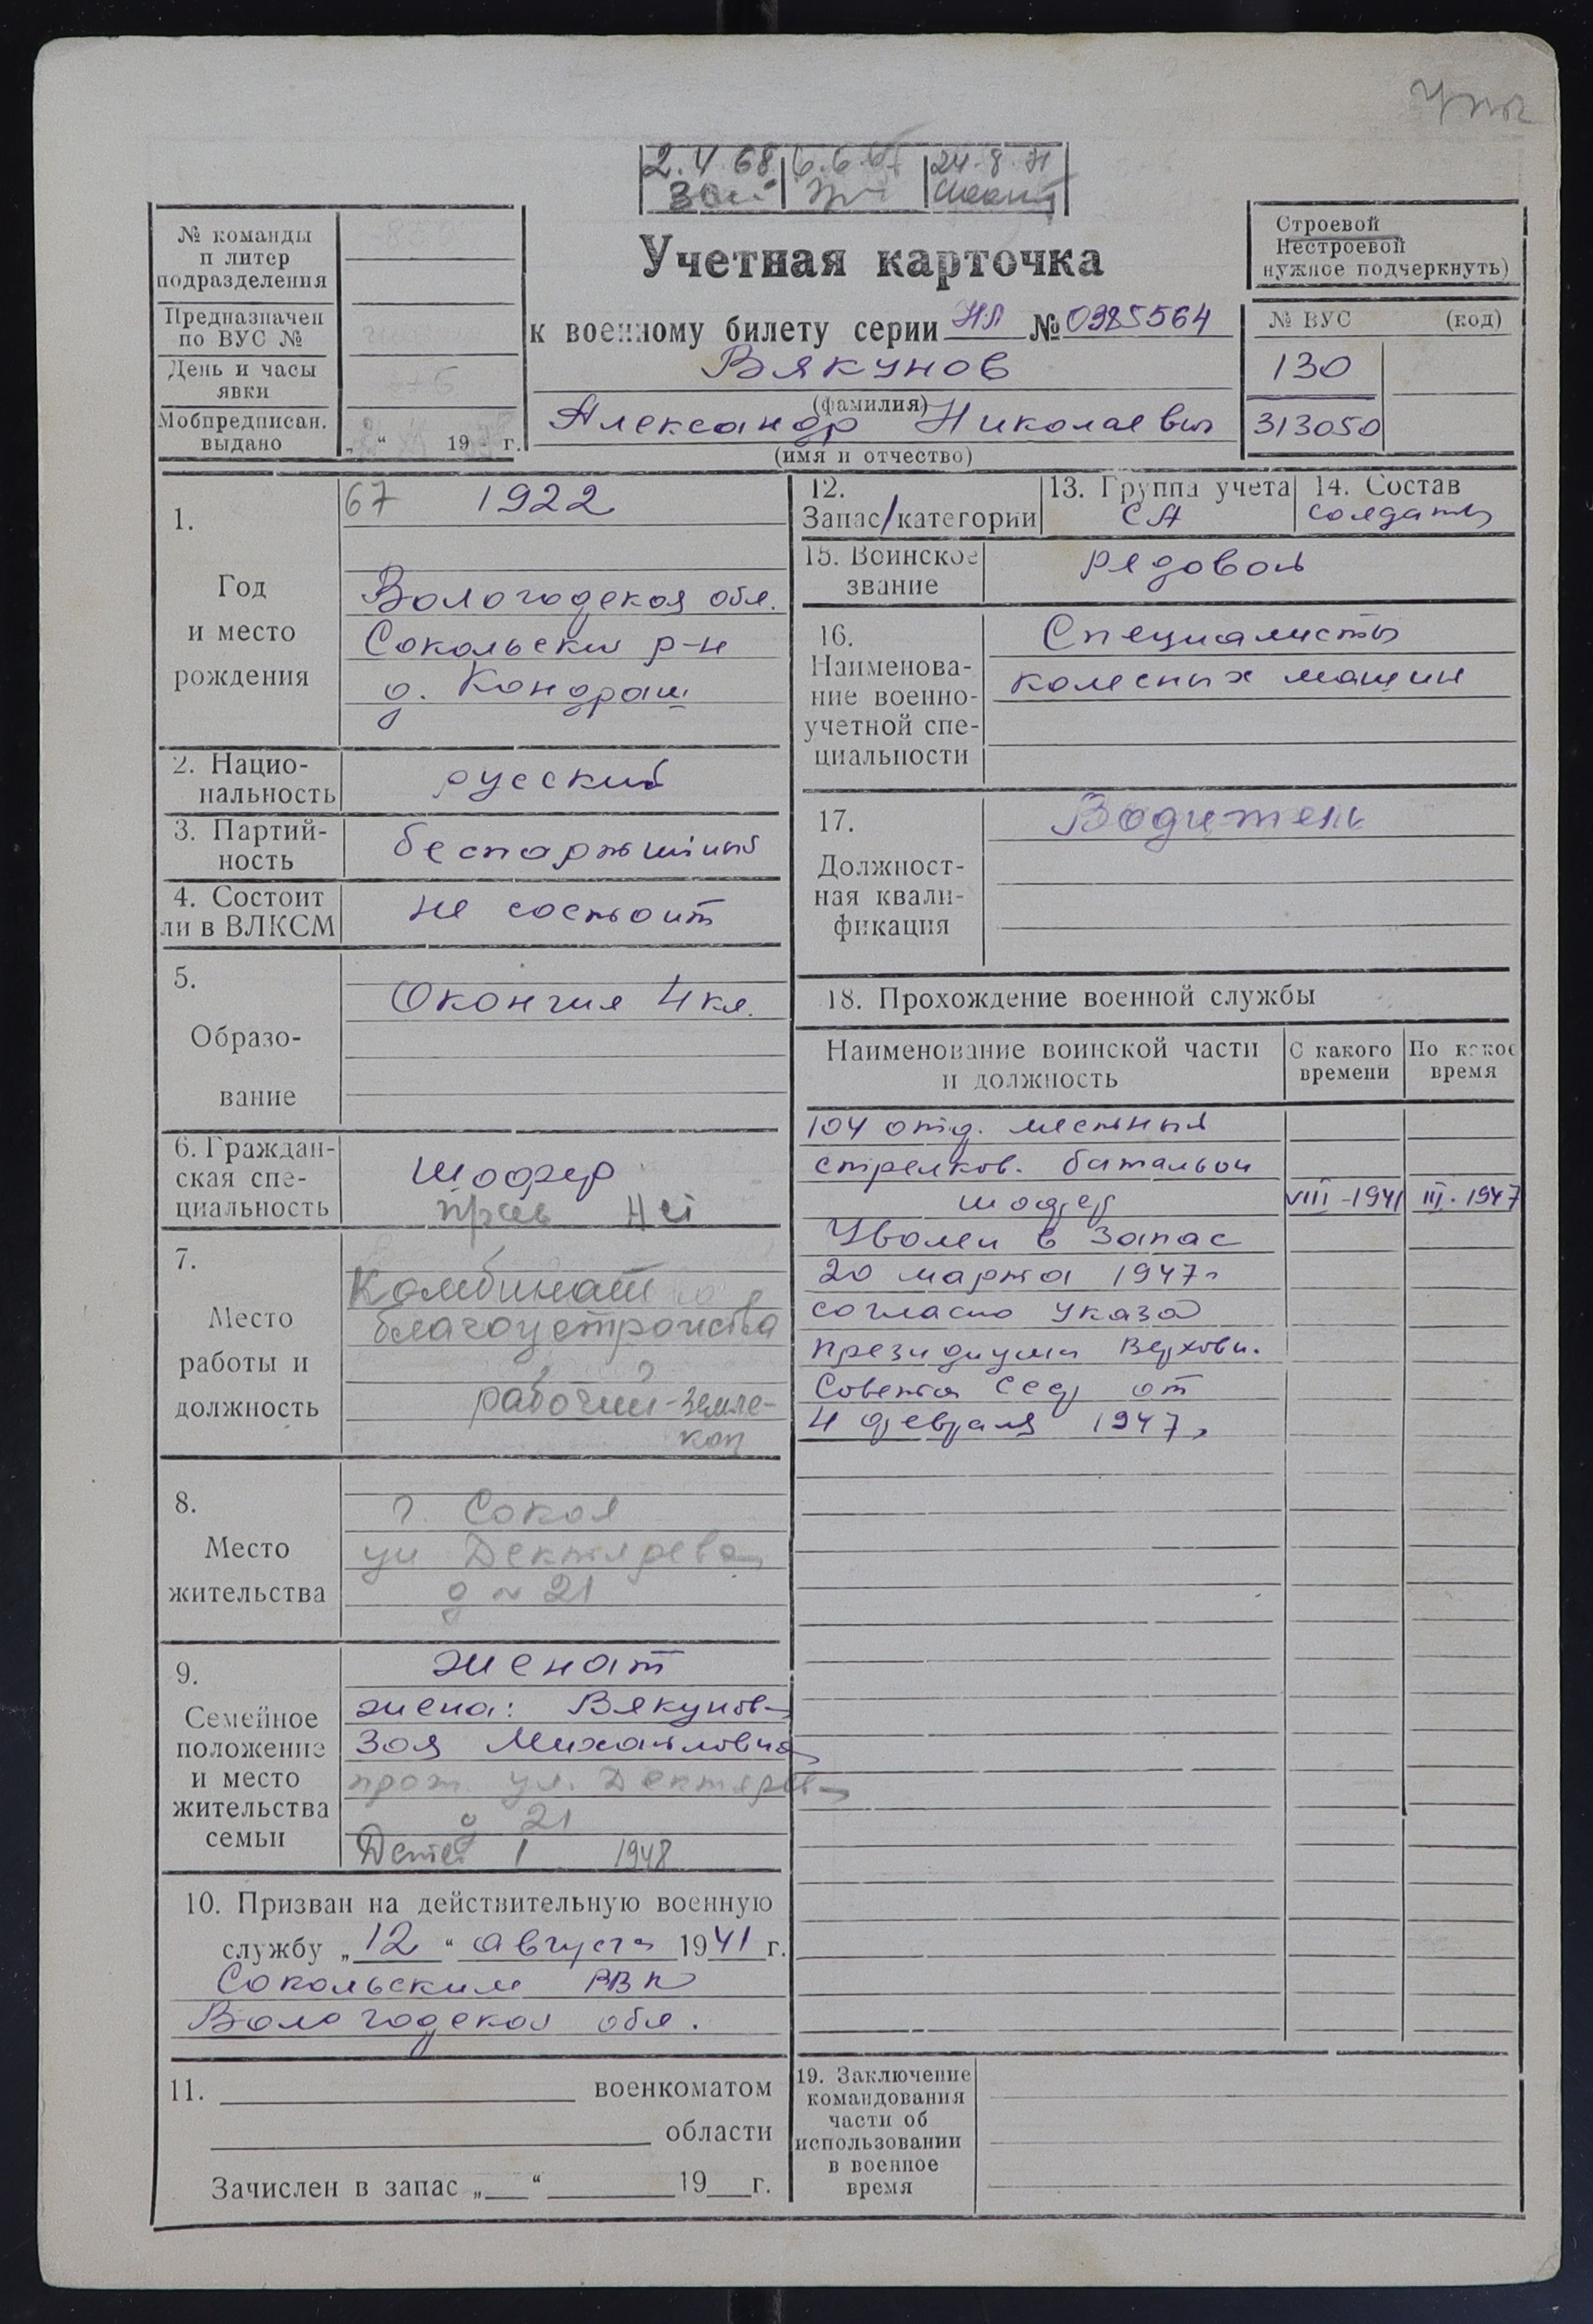 2.4.68
24.8.71
№ команды
п литер
подразделения
Предназначен
по ВУС №
День и часы
явки
Мобпредписан.
выдано
„ “ 19 г.
Учетная карточка
к военному билету серии НЛ № 0985564
Вякунов
(фамилия)
Александр Николаевич
(имя и отчество)
Строевой
Нестроевой
нужное подчеркнуть)
№ ВУС (код)
130
313050
1.
Год
и место
рождения
67 1922
Вологодская обл.
Сокольский р-н
д. Кондраш
2. Нацио-
нальность
русский
3. Партий-
ность
беспартийный
4. Состоит
ли в ВЛКСМ
не состоит
5.
Образо-
вание
Окончил 4 кл.
6. Граждан-
ская спе-
циальность
Шофер
прав нет
7.
Место
работы и
должность
Комбинат
благоустройства
рабочий-земле-
коп
8.
Место
жительства
г. Сокол
ул Дектярева
д № 21
9.
Семейное
положение
и место
жительства
семьи
женат
жена: Вякунова
Зоя Михайловна
прож. ул. Дектярева
д 21
Детей 1 1948
10. Призван на действительную военную
службу „12“ августа 1941 г.
Сокольским РВК
Вологодской обл.
11. военкоматом
области
Зачислен в запас „ “ 19 г.
12.
Запас/категории
13. Группа учета
СА
14. Состав
солдаты
15. Воинское
звание
рядовой
16.
Наименова-
ние военно-
учетной спе-
циальности
Специалисты
колесных машин
17.
Должност-
ная квали-
фикация
Водитель
18. Прохождение военной службы
Наименование воинской части
и должность
С какого
времени
По какое
время
104 отд. местный
стрелков. батальон
шофер VIII-1941 III.1947
Уволен в запас
20 марта 1947г
согласно указа
президиума Верховн.
Совета ССР от
4 февраля 1947г
19. Заключение
командования
части об
использовании
в военное
время